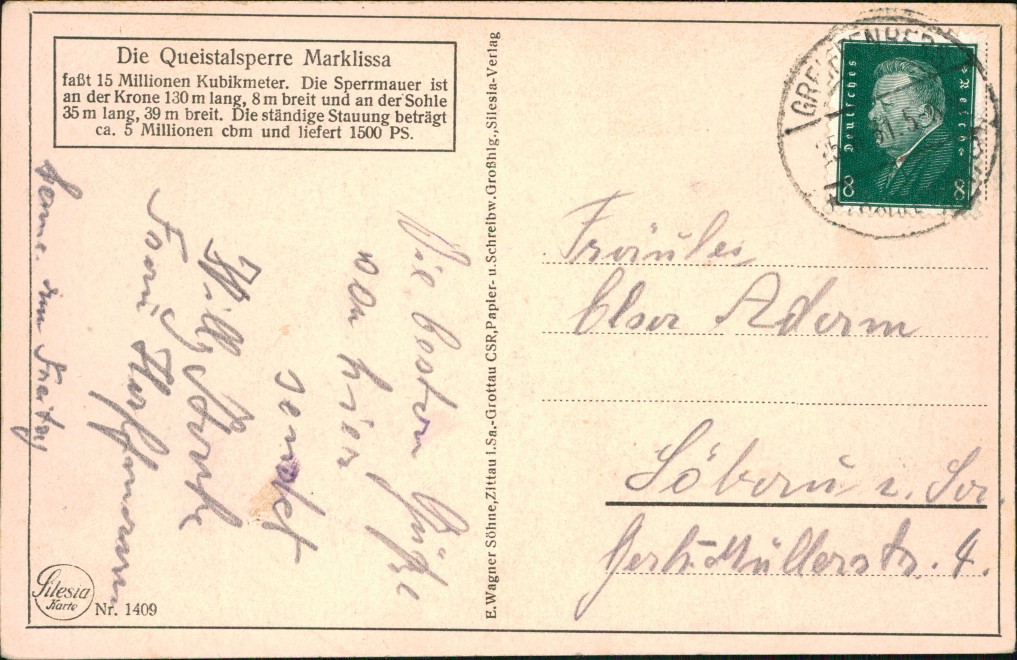 Die Queistalsperre Marklissa
faßt 15 Millionen Kubikmeter. Die Sperrmauer ist
an der Krone 130 m lang, 8 m breit und an der Sohle
35 m lang, 39 m breit. Die ständige Stauung beträgt
ca. 5 Millionen cbm und liefert 1500 PS.
Die besten Grüße
von hier
sendet
Willy
komme am Freitag
Silesia
Karte
Nr. 1409
E. Wagner Söhne, Zittau i. Sa.-Grottau CSR, Papier- u. Schreibw. Großhlg., Silesia-Verlag
Deutsches Reich
8 8
Fräulein
Elsa Adam
Löbau i. Sa.
Müllerstr. 4.